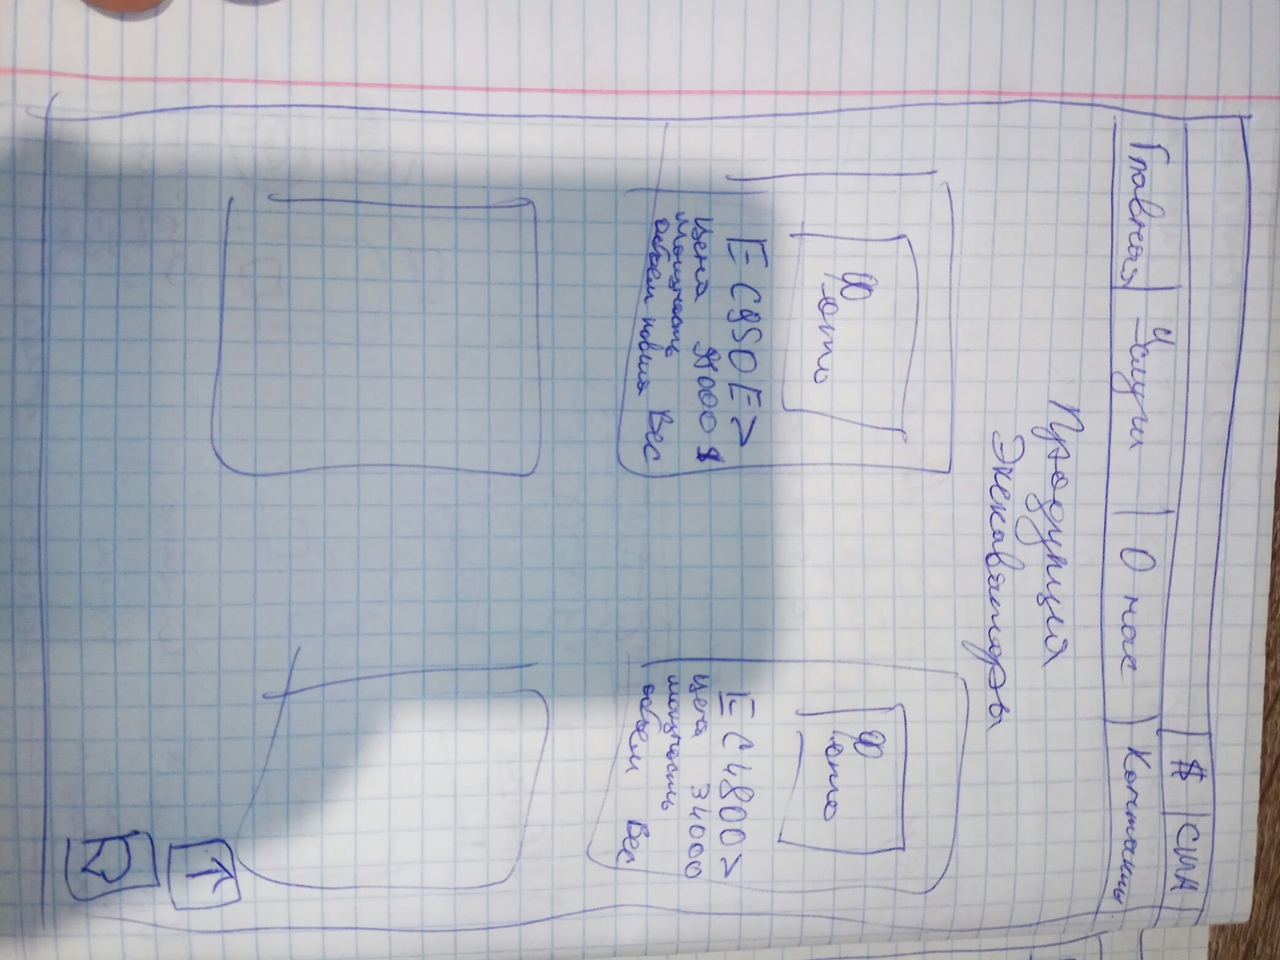 $ США
Главная Услуги О нас Контакты
Продукция
Экскаваторы
Фото
EC950E>
Цена 95000 $
мощность
объем ковша Вес
Фото
EC4800>
цена 34000
мощность
объем Вес